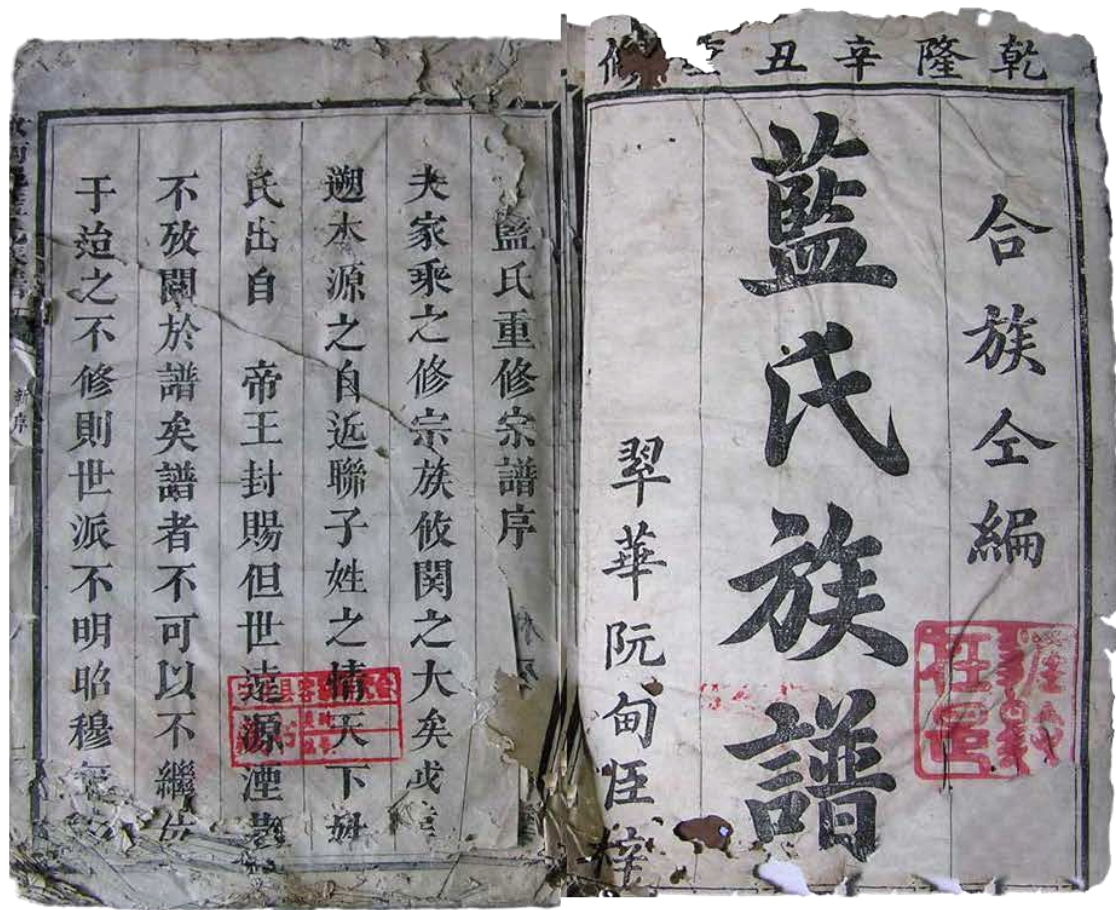 乾隆辛丑重修
合族仝編
藍氏族譜
翠華阮甸臣梓
藍氏重修宗譜序
夫家乘之修宗族攸関之大矣或
遡木源之自近聯子姓之情天下姓
氏出自 帝王封賜但世遠源湮
不攷闗於譜矣譜者不可以不繼
于迨之不修則世派不明昭穆無
新序